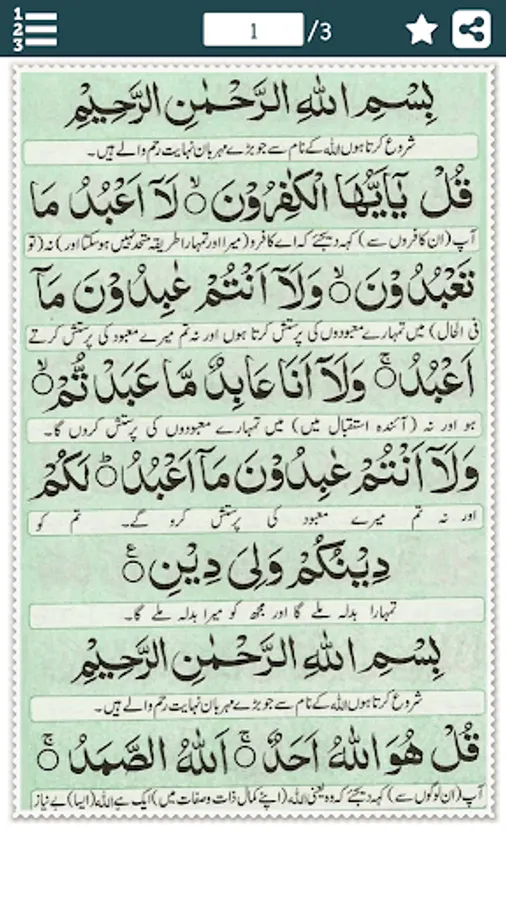 1 2 3
1 /3
بِسْمِ اللّٰهِ الرَّحْمٰنِ الرَّحِيْمِ
شروع کرتا ہوں اللہ کے نام سے جو بڑے مہربان نہایت رحم والے ہیں۔
قُلْ يٰۤاَيُّهَا الْكٰفِرُوْنَ ۙ لَاۤ اَعْبُدُ مَا
آپ (ان کافروں سے) کہہ دیجئے کہ اے کافرو (میرا اور تمہارا طریقہ متحد نہیں ہو سکتا اور) نہ (تو
تَعْبُدُوْنَ ۙ وَلَاۤ اَنْتُمْ عٰبِدُوْنَ مَاۤ
فی الحال) میں تمہارے معبودوں کی پرستش کرتا ہوں اور نہ تم میرے معبود کی پرستش کرتے
اَعْبُدُ ۚ وَلَاۤ اَنَا عَابِدٌ مَّا عَبَدْتُّمْ ۙ
ہو اور نہ (آئندہ استقبال میں) میں تمہارے معبودوں کی پرستش کروں گا۔
وَلَاۤ اَنْتُمْ عٰبِدُوْنَ مَاۤ اَعْبُدُ ؕ لَكُمْ
اور نہ تم میرے معبود کی پرستش کرو گے۔ تم کو
دِيْنُكُمْ وَلِیَ دِيْنِ ۠
تمہارا بدلہ ملے گا اور مجھ کو میرا بدلہ ملے گا۔
بِسْمِ اللّٰهِ الرَّحْمٰنِ الرَّحِيْمِ
شروع کرتا ہوں اللہ کے نام سے جو بڑے مہربان نہایت رحم والے ہیں۔
قُلْ هُوَ اللّٰهُ اَحَدٌ ۚ اَللّٰهُ الصَّمَدُ ۚ
آپ (ان لوگوں سے) کہہ دیجئے کہ وہ یعنی اللہ (اپنے کمال ذات و صفات میں) ایک ہے اللہ (ایسا) بے نیاز